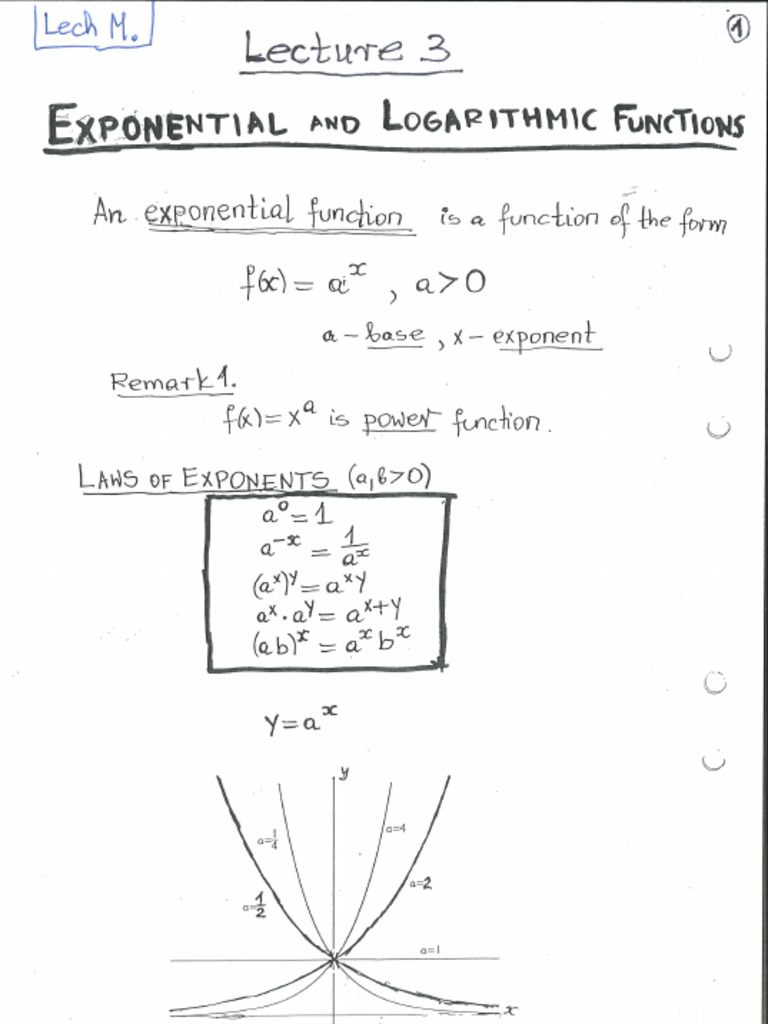 Lech M.
①
Lecture 3
EXPONENTIAL AND LOGARITHMIC FUNCTIONS
An exponential function is a function of the form
f(x) = a^x , a > 0
a - base, x - exponent
Remark 1.
f(x) = x^a is power function.
LAWS OF EXPONENTS (a,b>0)
a^0 = 1
a^-x = 1/a^x
(a^x)^y = a^xy
a^x · a^y = a^x+y
(ab)^x = a^x b^x
y = a^x
y
a=1/4
a=4
a=1/2
a=2
a=1
x